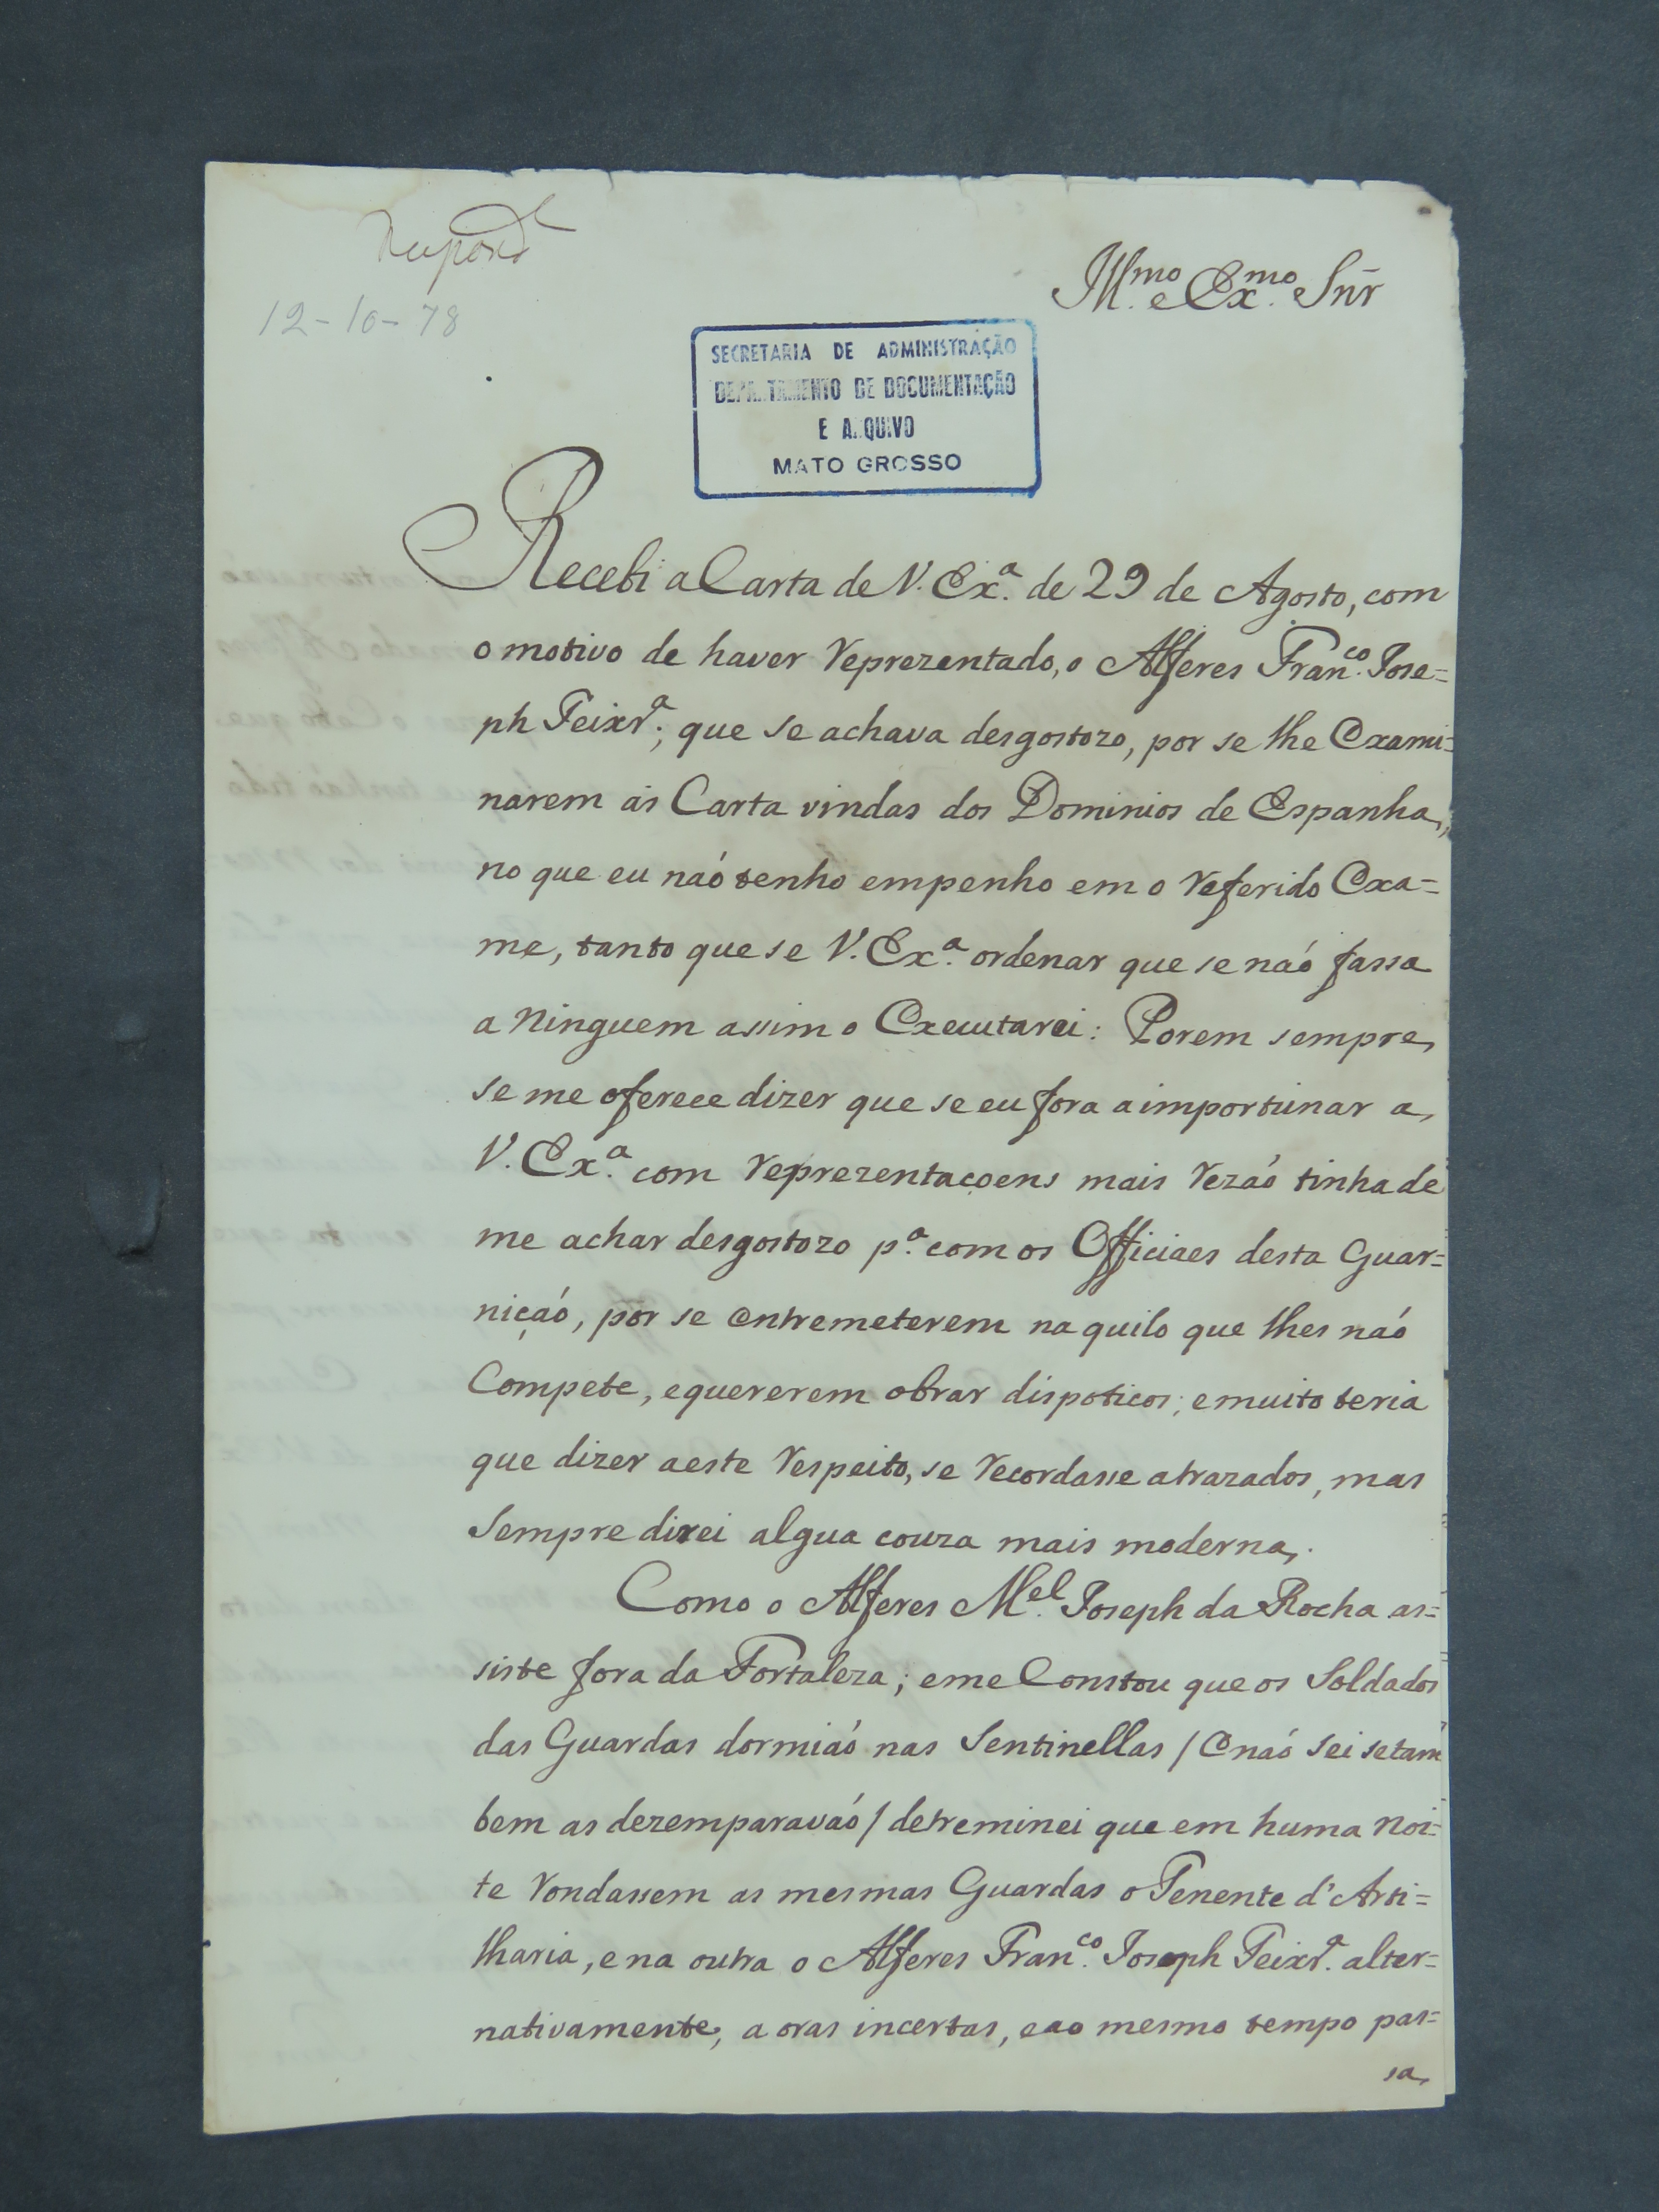 Respond.e
12-10-78
Ill.mo e Ex.mo Snr̃
SECRETARIA DE ADMINISTRAÇÃO
DEPARTAMENTO DE DOCUMENTAÇÃO
E ARQUIVO
MATO GROSSO
Recebi a Carta de V. Ex.ª de 29 de Agosto, com
o motivo de haver reprezentado, o Alferes Fran.co Jose=
ph Teixr.ª; que se achava desgostozo, por se lhe Exami=
narem as Carta vindas dos Dominios de Espanha,
no que eu naó tenho empenho em o referido Exa=
me, tanto que se V. Ex.ª ordenar que se naó fassa
a Ninguem assim o Executarei: Porem sempre
se me oferece dizer que se eu fora a importunar a
V. Ex.ª com reprezentaçoens mais rezaó tinha de
me achar desgostozo p.ª com os Officiaes desta Guar=
niçaó, por se entremeterem na quilo que lhes naó
Compete, e quererem obrar dispoticos; e muito teria
que dizer a este respeito, se recordasse atrazados, mas
Sempre direi algua couza mais moderna.
Como o Alferes M.el Joseph da Rocha as=
siste fora da Fortaleza; e me Constou que os Soldados
das Guardas dormiaó nas Sentinellas / E naó sei se tam
bem as dezemparavaó / detreminei que em huma Noi=
te rondassem as mesmas Guardas o Tenente d'Arti=
lharia, e na outra o Alferes Fran.co Joseph Teixr.ª alter=
nativamente, a oras incertas, e ao mesmo tempo pas=
sa